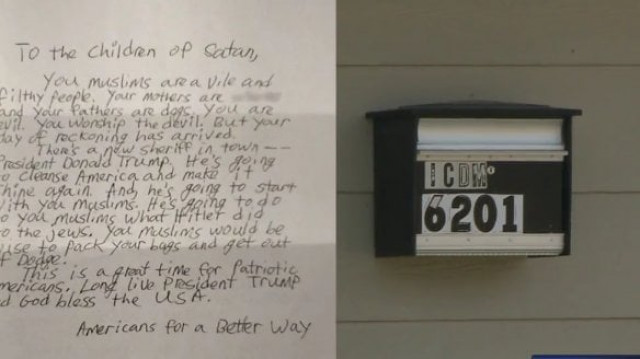 To the Children of Satan,
You muslims are a vile and
filthy people. Your mothers are
and your fathers are dogs. You are
evil. You worship the devil. But your
day of reckoning has arrived.
There's a new sheriff in town --
President Donald Trump. He's going
to cleanse America and make it
shine again. And, he's going to start
with you muslims. He's going to do
to you muslims what Hitler did
to the jews. You muslims would be
wise to pack your bags and get out
of Dodge.
This is a great time for Patriotic
Americans. Long live President Trump
and God bless the USA.
Americans for a Better Way
CDM
6201